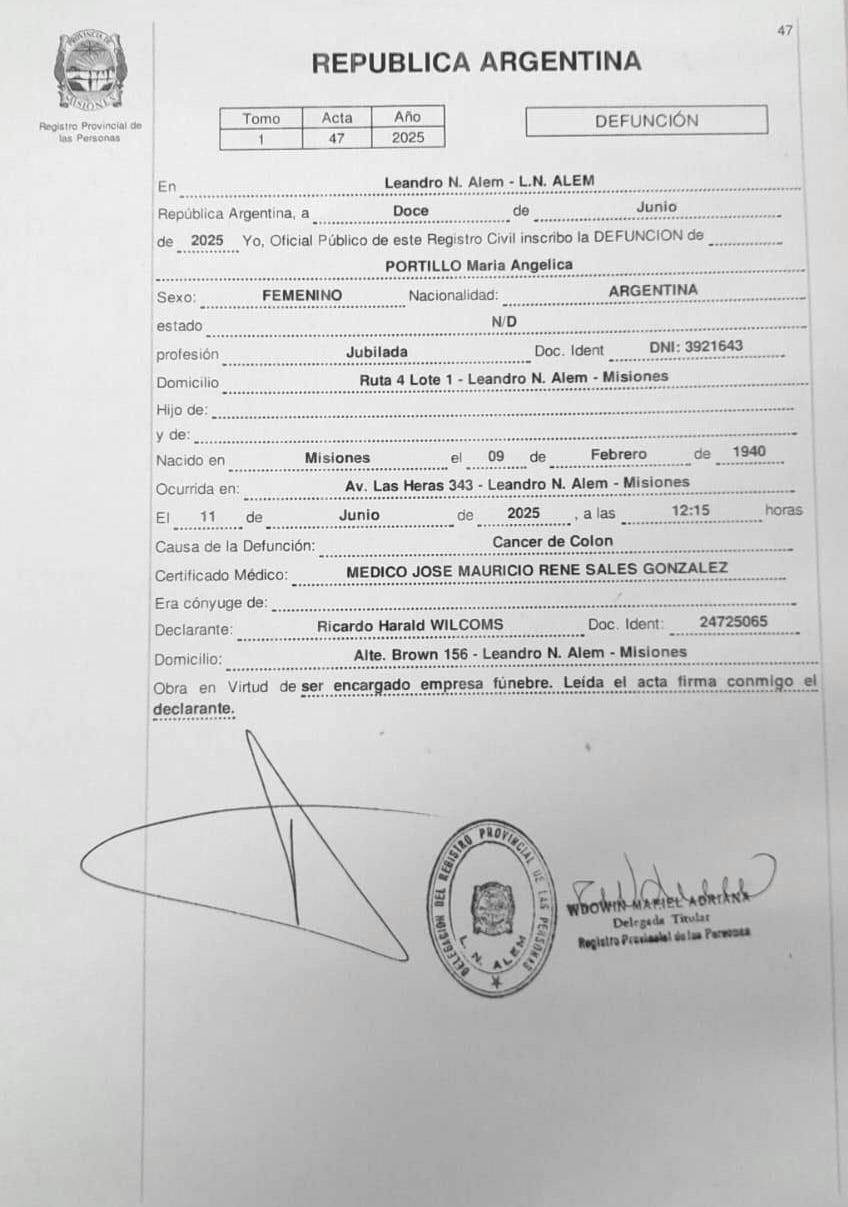 47
PROVINCIA DE
MISIONES
Registro Provincial de
las Personas
REPUBLICA ARGENTINA
Tomo Acta Año
1 47 2025
DEFUNCIÓN
En Leandro N. Alem - L.N. ALEM
República Argentina, a Doce de Junio
de 2025 Yo, Oficial Público de este Registro Civil inscribo la DEFUNCION de
PORTILLO Maria Angelica
Sexo: FEMENINO Nacionalidad: ARGENTINA
estado N/D
profesión Jubilada Doc. Ident DNI: 3921643
Domicilio Ruta 4 Lote 1 - Leandro N. Alem - Misiones
Hijo de:
y de:
Nacido en Misiones el 09 de Febrero de 1940
Ocurrida en: Av. Las Heras 343 - Leandro N. Alem - Misiones
El 11 de Junio de 2025, a las 12:15 horas
Causa de la Defunción: Cancer de Colon
Certificado Médico: MEDICO JOSE MAURICIO RENE SALES GONZALEZ
Era cónyuge de:
Declarante: Ricardo Harald WILCOMS Doc. Ident: 24725065
Domicilio: Alte. Brown 156 - Leandro N. Alem - Misiones
Obra en Virtud de ser encargado empresa fúnebre. Leída el acta firma conmigo el
declarante.
DELEGACION DEL REGISTRO PROVINCIAL DE LAS PERSONAS
L. N. ALEM
WDOWIN MARIEL ADRIANA
Delegada Titular
Registro Provincial de las Personas